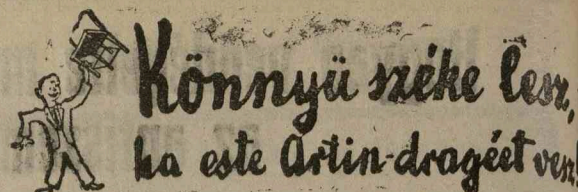 Könnyü széke lesz,
ha este Artin-dragéet vesz!